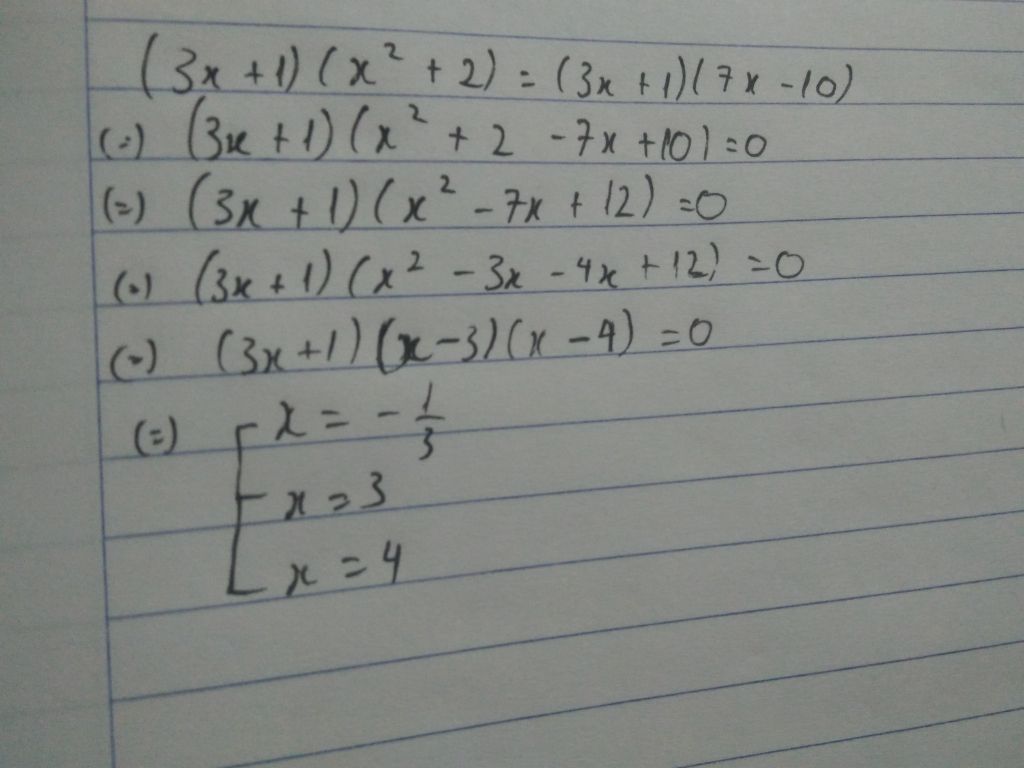 (3x + 1)(x² + 2) = (3x + 1)(7x - 10)
(=) (3x + 1)(x² + 2 - 7x + 10) = 0
(=) (3x + 1)(x² - 7x + 12) = 0
(=) (3x + 1)(x² - 3x - 4x + 12) = 0
(=) (3x + 1)(x - 3)(x - 4) = 0
(=) [ x = - 1/3
x = 3
x = 4